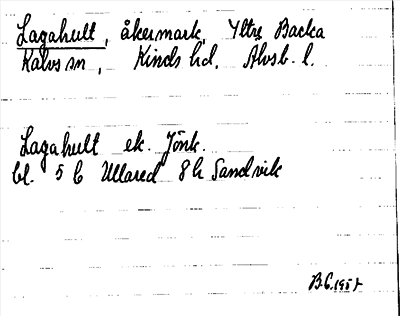 Lagahult, åkermark, Yttre Backa
Kalvs sn, Kinds hd, Älvsb. l.
Lagahult ek. Jönk.
bl. 5 b Ullared 8 h Sandvik